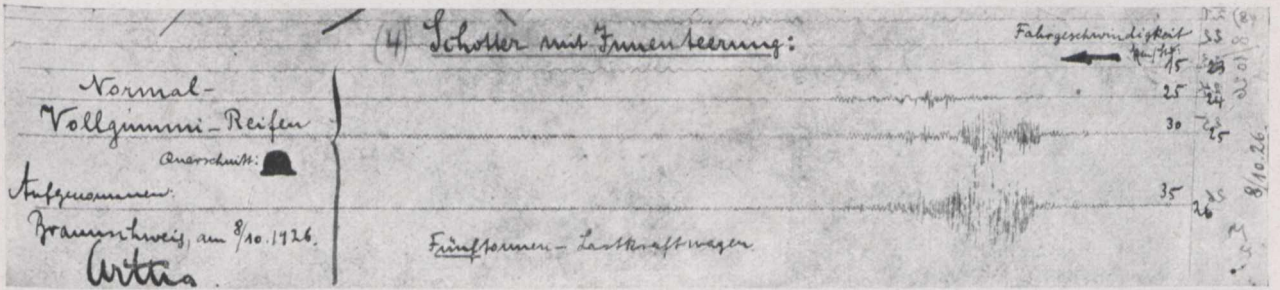 (4) Schotter mit Innenteerung:
Fahrgeschwindigkeit
km/St.
15 23
25 24
30 25
35 26
Normal-
Vollgummi-Reifen
Querschnitt:
Aufgenommen:
Braunschweig, am 8/10.1926.
Fünftonnen-Lastkraftwagen.
8/10.26.